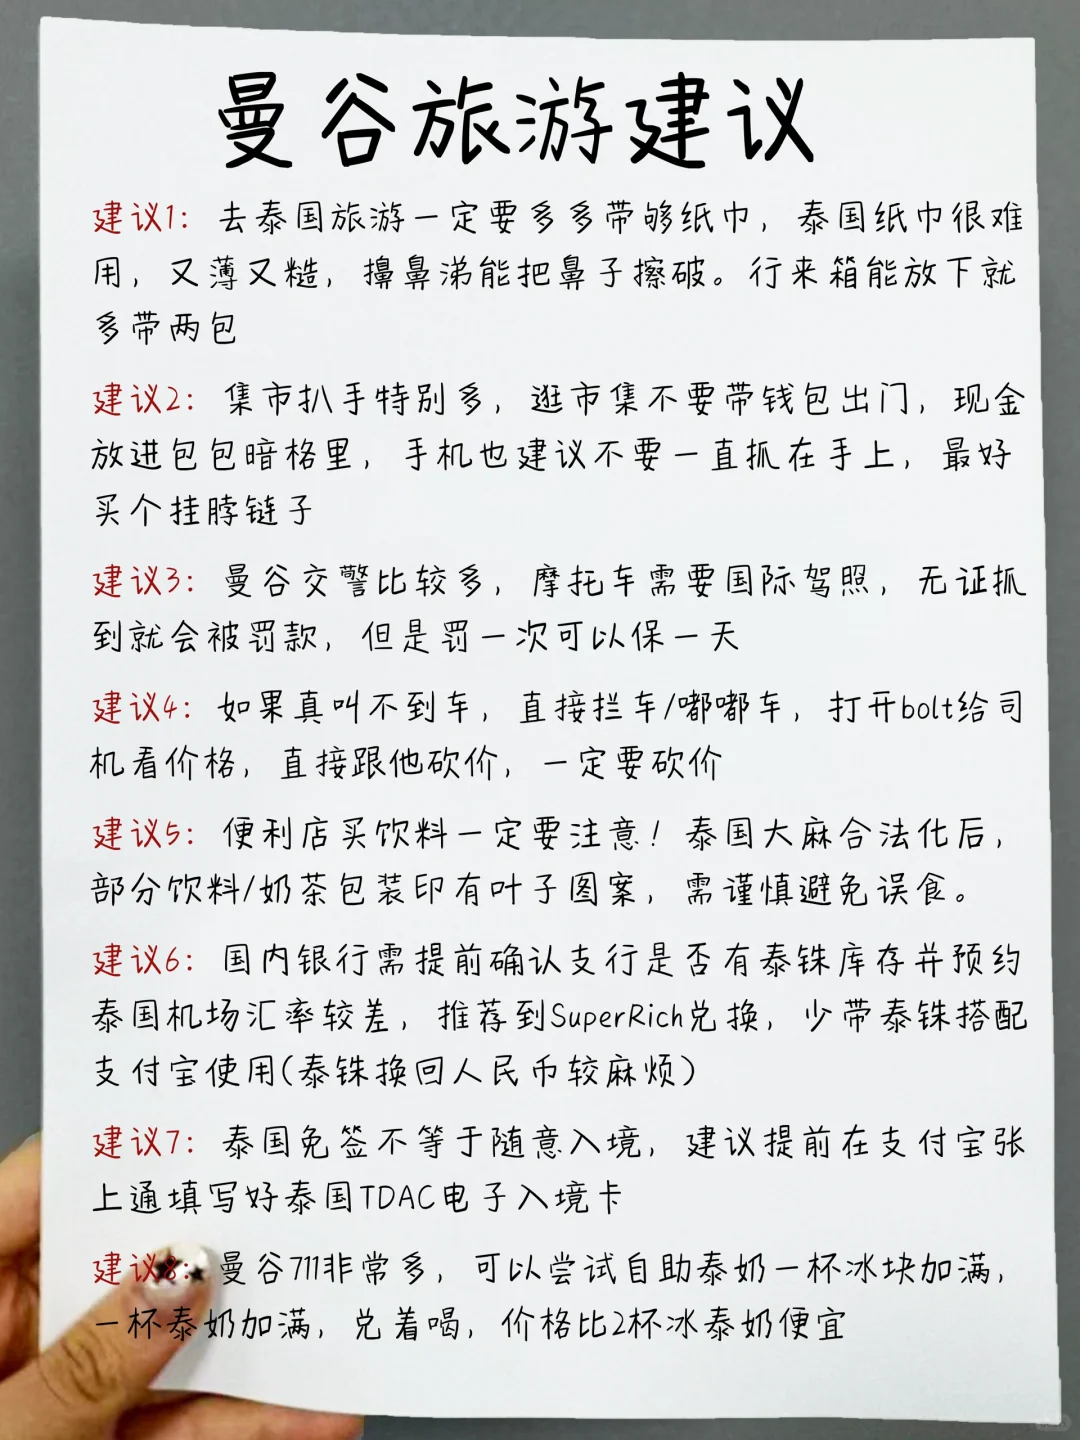 曼谷旅游建议
建议1：去泰国旅游一定要多多带够纸巾，泰国纸巾很难
用，又薄又糙，擤鼻涕能把鼻子擦破。行来箱能放下就
多带两包
建议2：集市扒手特别多，逛市集不要带钱包出门，现金
放进包包暗格里，手机也建议不要一直抓在手上，最好
买个挂脖链子
建议3：曼谷交警比较多，摩托车需要国际驾照，无证抓
到就会被罚款，但是罚一次可以保一天
建议4：如果真叫不到车，直接拦车/嘟嘟车，打开bolt给司
机看价格，直接跟他砍价，一定要砍价
建议5：便利店买饮料一定要注意！泰国大麻合法化后，
部分饮料/奶茶包装印有叶子图案，需谨慎避免误食。
建议6：国内银行需提前确认支行是否有泰铢库存并预约
泰国机场汇率较差，推荐到SuperRich兑换，少带泰铢搭配
支付宝使用(泰铢换回人民币较麻烦)
建议7：泰国免签不等于随意入境，建议提前在支付宝张
上通填写好泰国TDAC电子入境卡
建议8：曼谷711非常多，可以尝试自助泰奶一杯冰块加满，
一杯泰奶加满，兑着喝，价格比2杯冰泰奶便宜